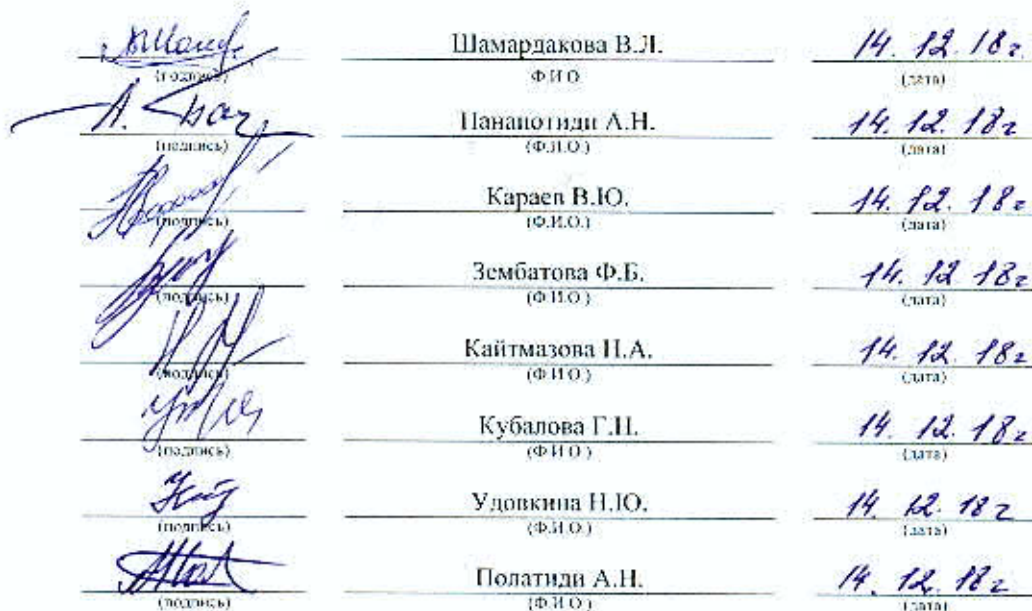 Шамардакова В.Л. 14.12.18г.
(подпись) Ф.И.О. (дата)
Панаиотиди А.Н. 14.12.18г
(подпись) (Ф.И.О.) (дата)
Караев В.Ю. 14.12.18г
(подпись) (Ф.И.О.) (дата)
Зембатова Ф.Б. 14.12 18г
(подпись) (Ф.И.О.) (дата)
Кайтмазова И.А. 14.12.18г
(подпись) (Ф.И.О.) (дата)
Кубалова Г.Н. 14.12.18г
(подпись) (Ф.И.О.) (дата)
Удовкина Н.Ю. 14.12.18г
(подпись) (Ф.И.О.) (дата)
Полатиди А.Н. 14.12.18г
(подпись) (Ф.И.О.) (дата)